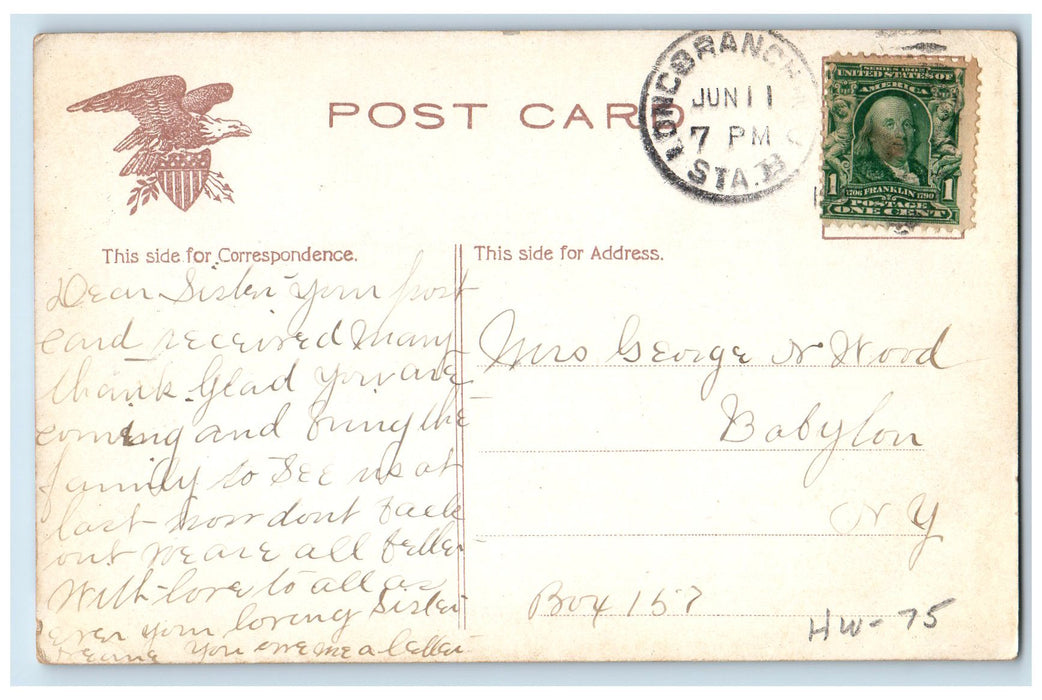 POST CARD
LONG BRANCH
JUN 11
7 PM
STA. B
SERIES 1902
UNITED STATES OF
AMERICA
1 1706 FRANKLIN 1790 1
POSTAGE
ONE CENT
This side for Correspondence.
Dear Sister your post
card received Many
thank. Glad you are
coming and bring the
family to see us at
last now dont back
out we are all better
With love to all as
ever your loving Sister
You owe me a letter
This side for Address.
Mrs George N Wood
Babylon
N Y
Box 157
HW-75